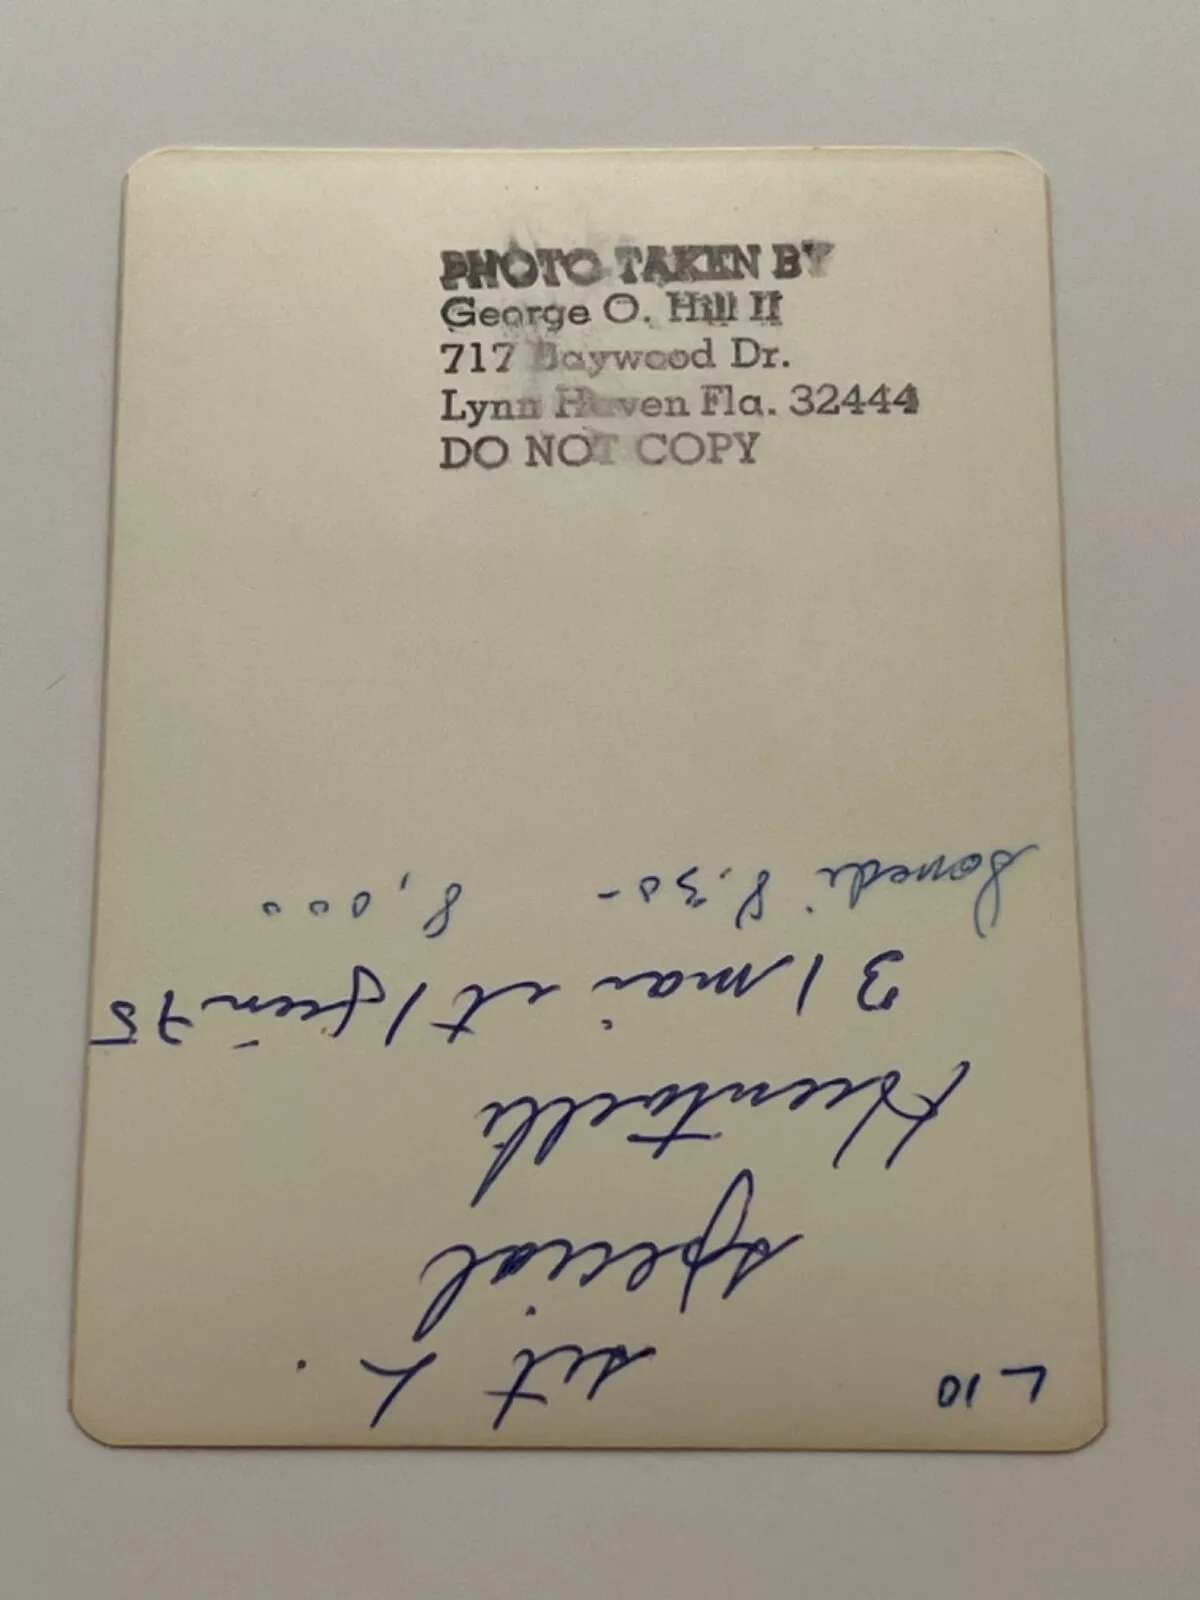 PHOTO TAKEN BY
George O. Hill II
717 Baywood Dr.
Lynn Haven Fla. 32444
DO NOT COPY
L10
set L.
special
Huntsville
31 mai et 1 juin 75
Samedi 8.30- 8,000